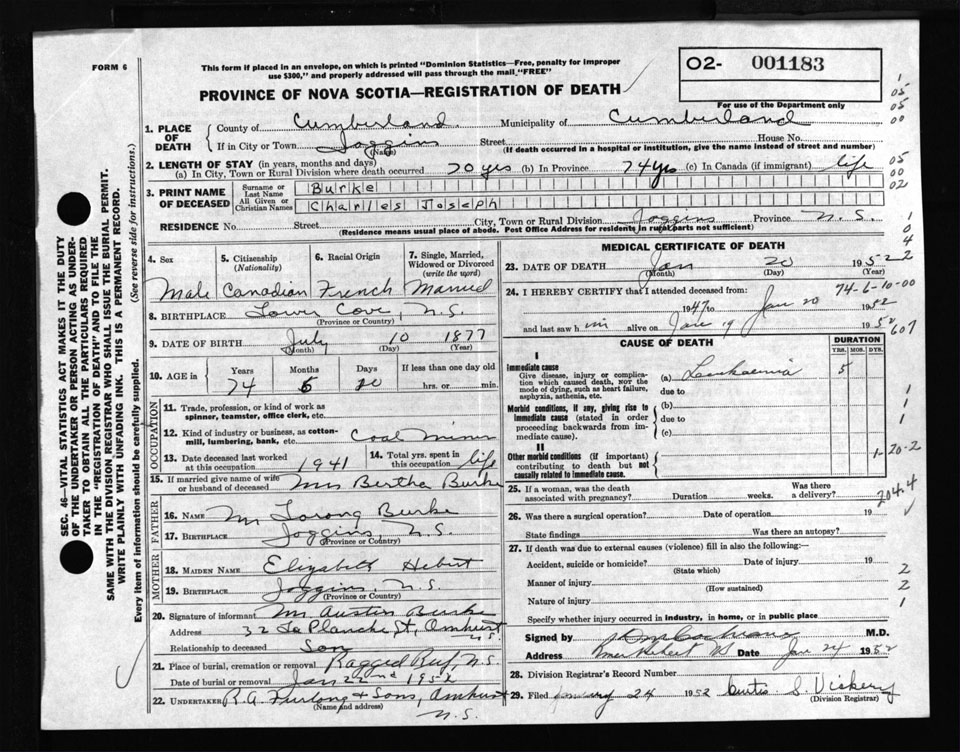 FORM 6
This form if placed in an envelope, on which is printed "Dominion Statistics—Free, penalty for improper
use $300," and properly addressed will pass through the mail "FREE"
O2- 001183
For use of the Department only
PROVINCE OF NOVA SCOTIA—REGISTRATION OF DEATH
1
05
05
00
1. PLACE OF DEATH
County of Cumberland Municipality of Cumberland
If in City or Town Joggins Street House No.
(Name) (If death occurred in a hospital or institution, give the name instead of street and number)
2. LENGTH OF STAY (in years, months and days)
(a) In City, Town or Rural Division where death occurred 70 yrs (b) In Province 74 yrs (c) In Canada (if immigrant) life
05
00
02
3. PRINT NAME OF DECEASED
Surname or Last Name Burke
All Given or Christian Names Charles Joseph
RESIDENCE No. Street City, Town or Rural Division Joggins Province N.S.
(Residence means usual place of abode. Post Office Address for residents in rural parts not sufficient)
1
0
4
4. Sex 5. Citizenship (Nationality) 6. Racial Origin 7. Single, Married, Widowed or Divorced (write the word)
Male Canadian French Married
8. BIRTHPLACE Lower Cove, N.S.
(Province or Country)
9. DATE OF BIRTH July 10 1877
(Month) (Day) (Year)
10. AGE in Years Months Days If less than one day old
74 6 10 hrs. or min.
OCCUPATION
11. Trade, profession, or kind of work as
spinner, teamster, office clerk, etc.
12. Kind of industry or business, as cotton-
mill, lumbering, bank, etc. Coal Miner
13. Date deceased last worked at this occupation 1941
14. Total yrs. spent in this occupation life
15. If married give name of wife or husband of deceased Mrs Bertha Burke
FATHER
16. NAME Mr Burke
17. BIRTHPLACE Joggins N.S.
(Province or Country)
MOTHER
18. MAIDEN NAME Elizabeth Hebert
19. BIRTHPLACE Joggins, N.S.
(Province or Country)
20. Signature of informant Mr Austin Burke
Address 32 La Planche St, Amherst N.S.
Relationship to deceased Son
21. Place of burial, cremation or removal Ragged Reef, N.S.
Date of burial or removal Jan 22nd 1952
22. UNDERTAKER R.A. Furlong & Sons, Amherst
(Name and address) N.S.
MEDICAL CERTIFICATE OF DEATH
23. DATE OF DEATH Jan 20 1952
(Month) (Day) (Year)
24. I HEREBY CERTIFY that I attended deceased from: 74-6-10-00
1947 to Jan 20 1952
and last saw him alive on Jan 19 1952
607
CAUSE OF DEATH DURATION
YRS. MOS. DYS.
I
Immediate cause (a) Leukaemia 5
Give disease, injury or complica-
tion which caused death, not the
mode of dying, such as heart failure,
asphyxia, asthenia, etc.
due to
Morbid conditions, if any, giving rise to
immediate cause (stated in order
proceeding backwards from im-
mediate cause).
(b)
due to
(c)
II
Other morbid conditions (if important)
contributing to death but not
causally related to immediate cause.
1
1
1
1-20-2
25. If a woman, was the death associated with pregnancy? Duration weeks. Was there a delivery?
204.4
26. Was there a surgical operation? Date of operation 19
State findings Was there an autopsy?
27. If death was due to external causes (violence) fill in also the following:—
Accident, suicide or homicide? Date of injury 19
(State which)
Manner of injury
(How sustained)
Nature of injury
Specify whether injury occurred in industry, in home, or in public place
2
2
1
Signed by Cochrane M.D.
Address River Hebert NS Date Jan 24 1952
28. Division Registrar's Record Number
29. Filed January 24 1952 Curtis S. Vickery
(Division Registrar)
SEC. 46—VITAL STATISTICS ACT MAKES IT THE DUTY
OF THE UNDERTAKER OR PERSON ACTING AS UNDER-
TAKER TO OBTAIN ALL THE PARTICULARS REQUIRED
IN THE "REGISTRATION OF DEATH" AND TO FILE THE
SAME WITH THE DIVISION REGISTRAR WHO SHALL ISSUE THE BURIAL PERMIT.
WRITE PLAINLY WITH UNFADING INK. THIS IS A PERMANENT RECORD.
Every item of information should be carefully supplied. (See reverse side for instructions.)